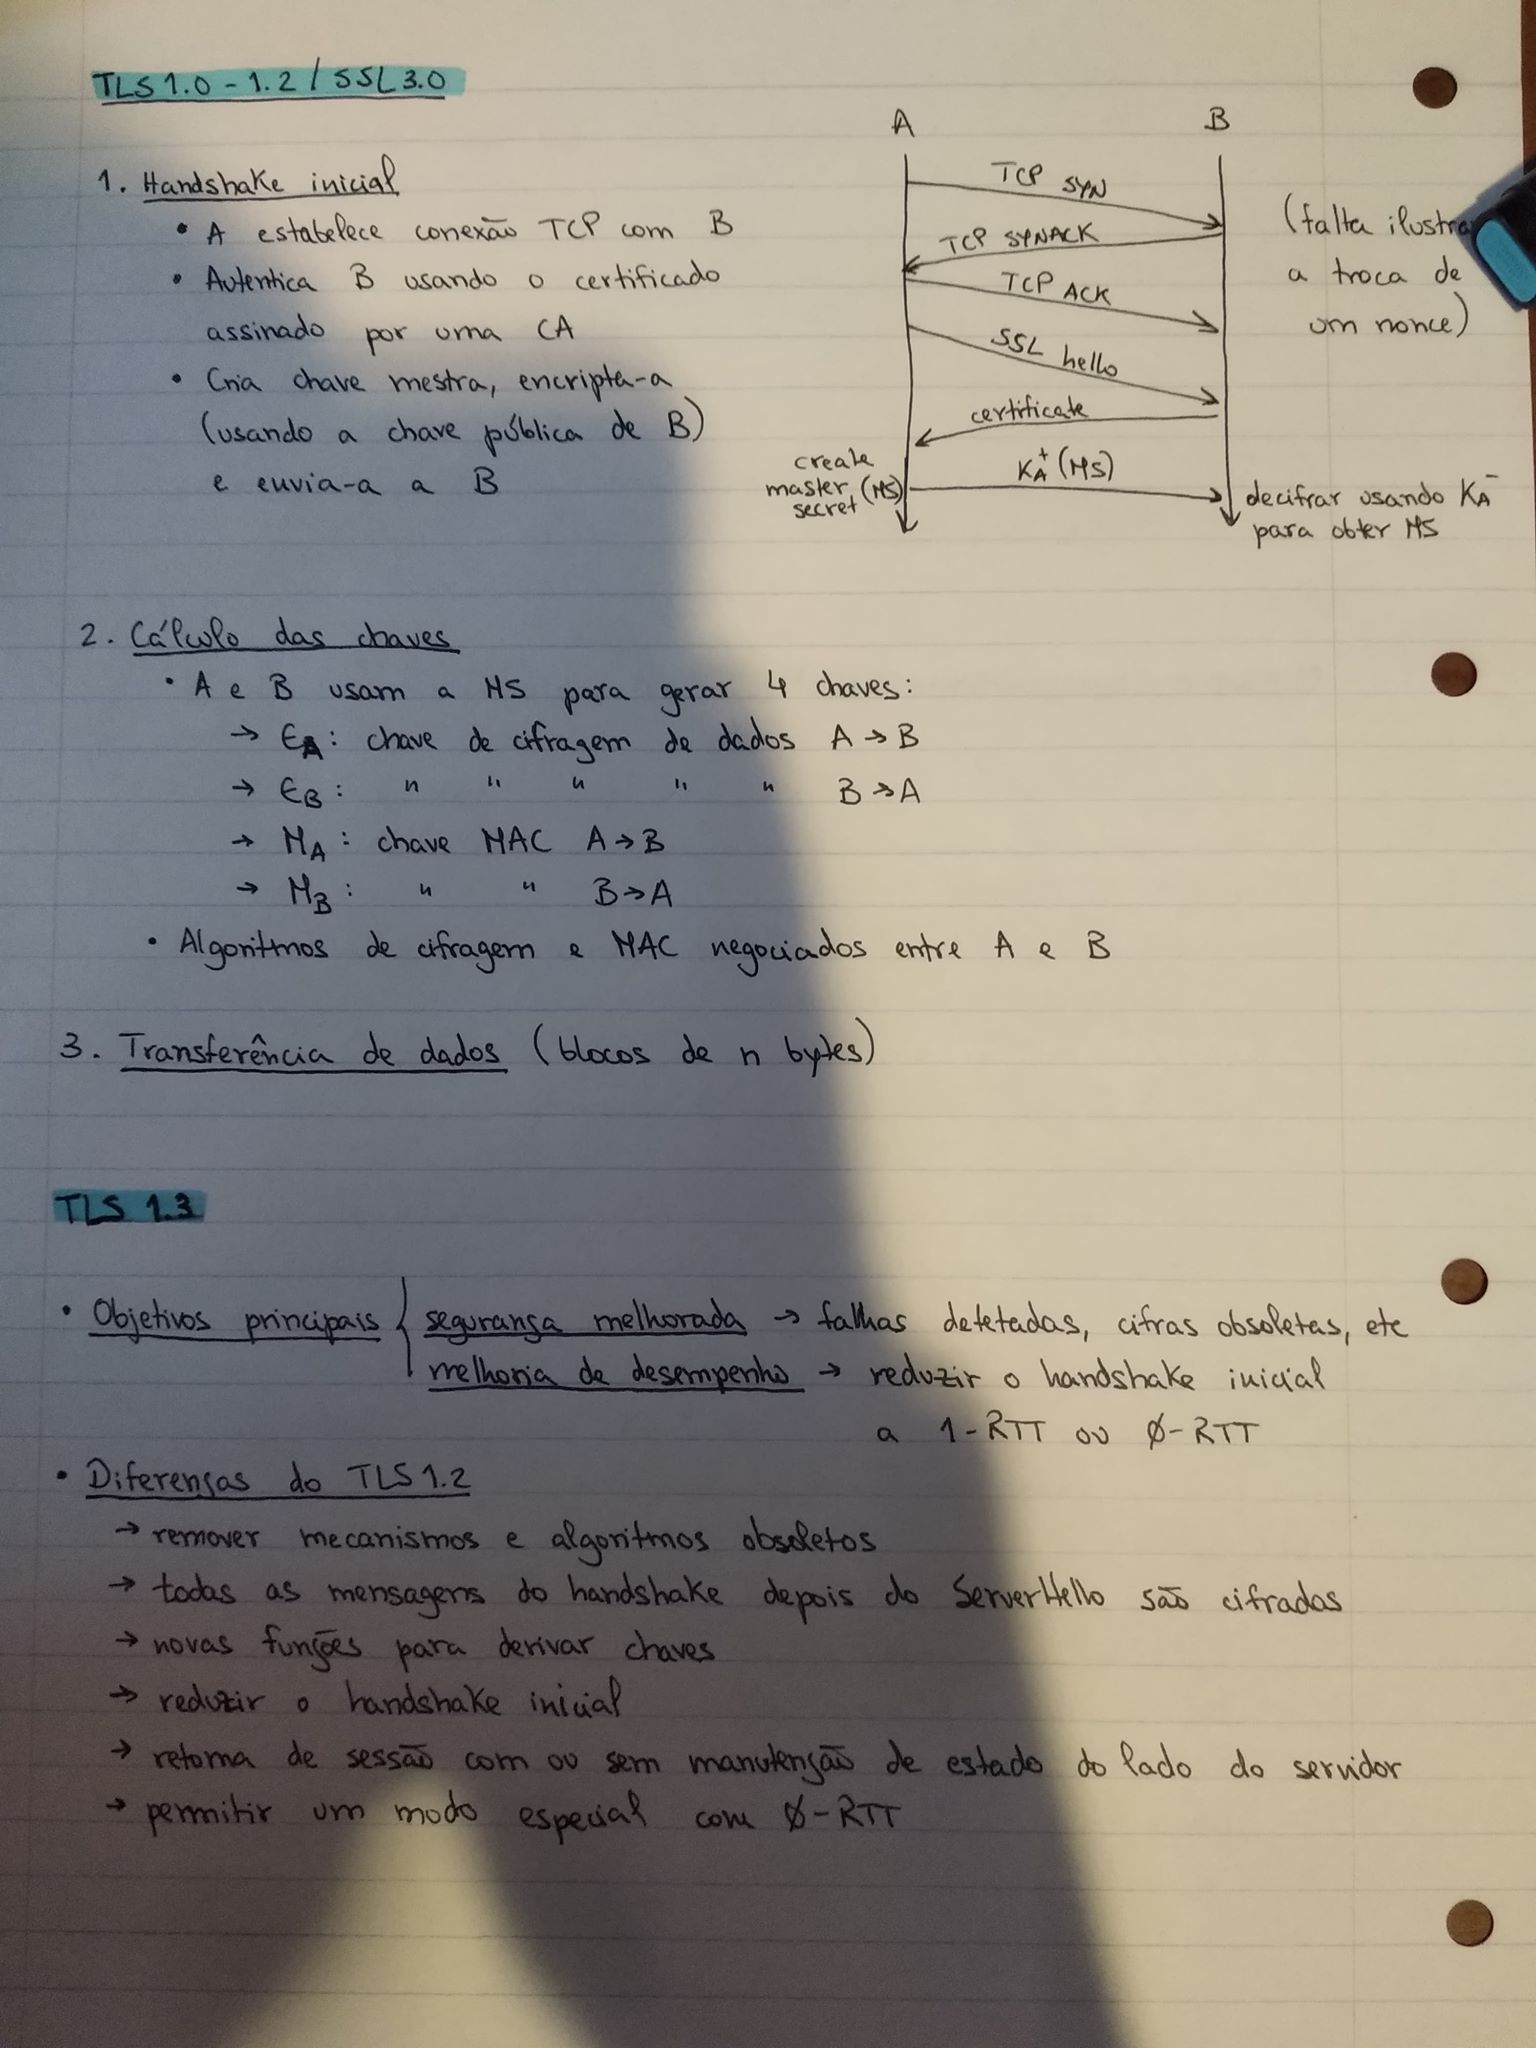 TLS 1.0 - 1.2 / SSL 3.0
1. Handshake inicial
• A estabelece conexão TCP com B
• Autentica B usando o certificado
assinado por uma CA
• Cria chave mestra, encripta-a
(usando a chave pública de B)
e envia-a a B
A B
TCP SYN
TCP SYNACK
TCP ACK
SSL hello
certificate
create
master (MS)
secret
K_A^+ (MS)
decifrar usando K_A^-
para obter MS
(falta ilustra
a troca de
um nonce)
2. Cálculo das chaves
• A e B usam a MS para gerar 4 chaves:
→ E_A: chave de cifragem de dados A → B
→ E_B: " " " " " B → A
→ M_A: chave MAC A → B
→ M_B: " " B → A
• Algoritmos de cifragem e MAC negociados entre A e B
3. Transferência de dados (blocos de n bytes)
TLS 1.3
• Objetivos principais { segurança melhorada → falhas detetadas, cifras obsoletas, etc
melhoria de desempenho → reduzir o handshake inicial
a 1-RTT ou 0-RTT
• Diferenças do TLS 1.2
→ remover mecanismos e algoritmos obsoletos
→ todas as mensagens do handshake depois do ServerHello são cifradas
→ novas funções para derivar chaves
→ reduzir o handshake inicial
→ retoma de sessão com ou sem manutenção de estado do lado do servidor
→ permitir um modo especial com 0-RTT